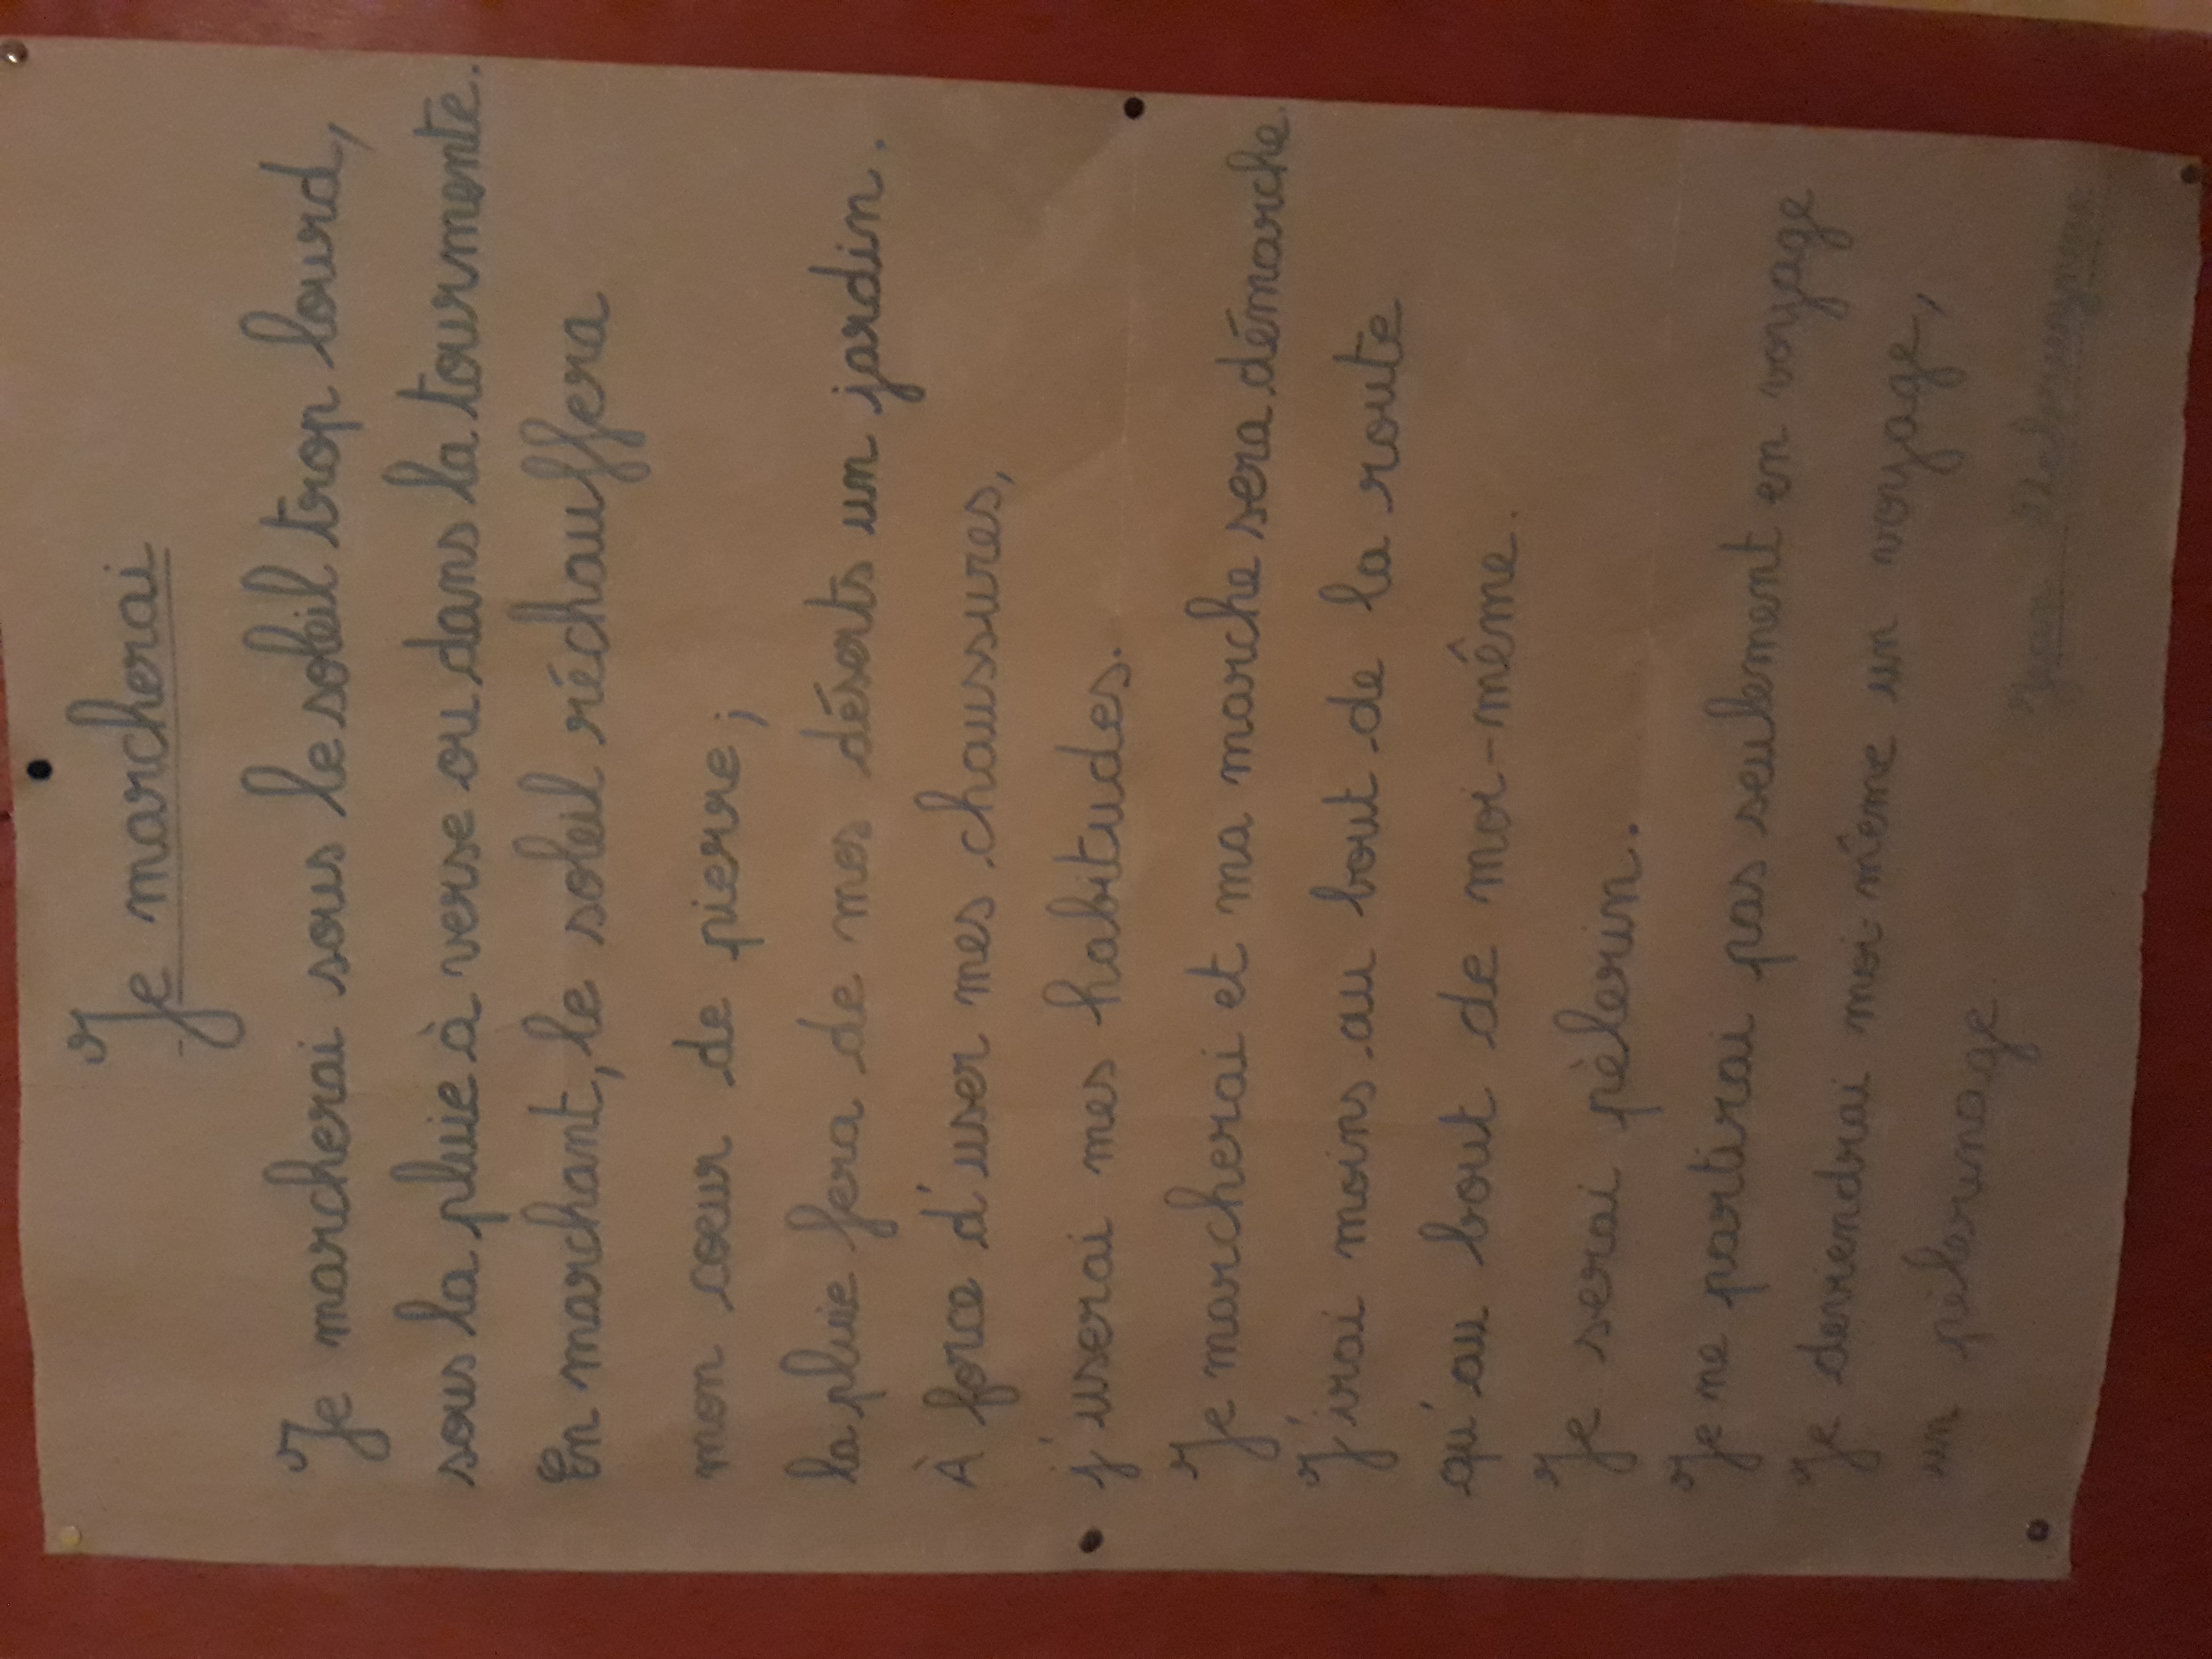 Je marcherai
Je marcherai sous le soleil trop lourd,
sous la pluie à verse ou dans la tourmente.
En marchant, le soleil réchauffera
mon cœur de pierre ;
la pluie fera de mes déserts un jardin.
À force d'user mes chaussures,
j'userai mes habitudes.
Je marcherai et ma marche sera démarche.
J'irai moins au bout de la route
qu'au bout de moi-même.
Je serai pèlerin.
Je ne partirai pas seulement en voyage
Je deviendrai moi-même un voyage,
un pèlerinage.
Jean